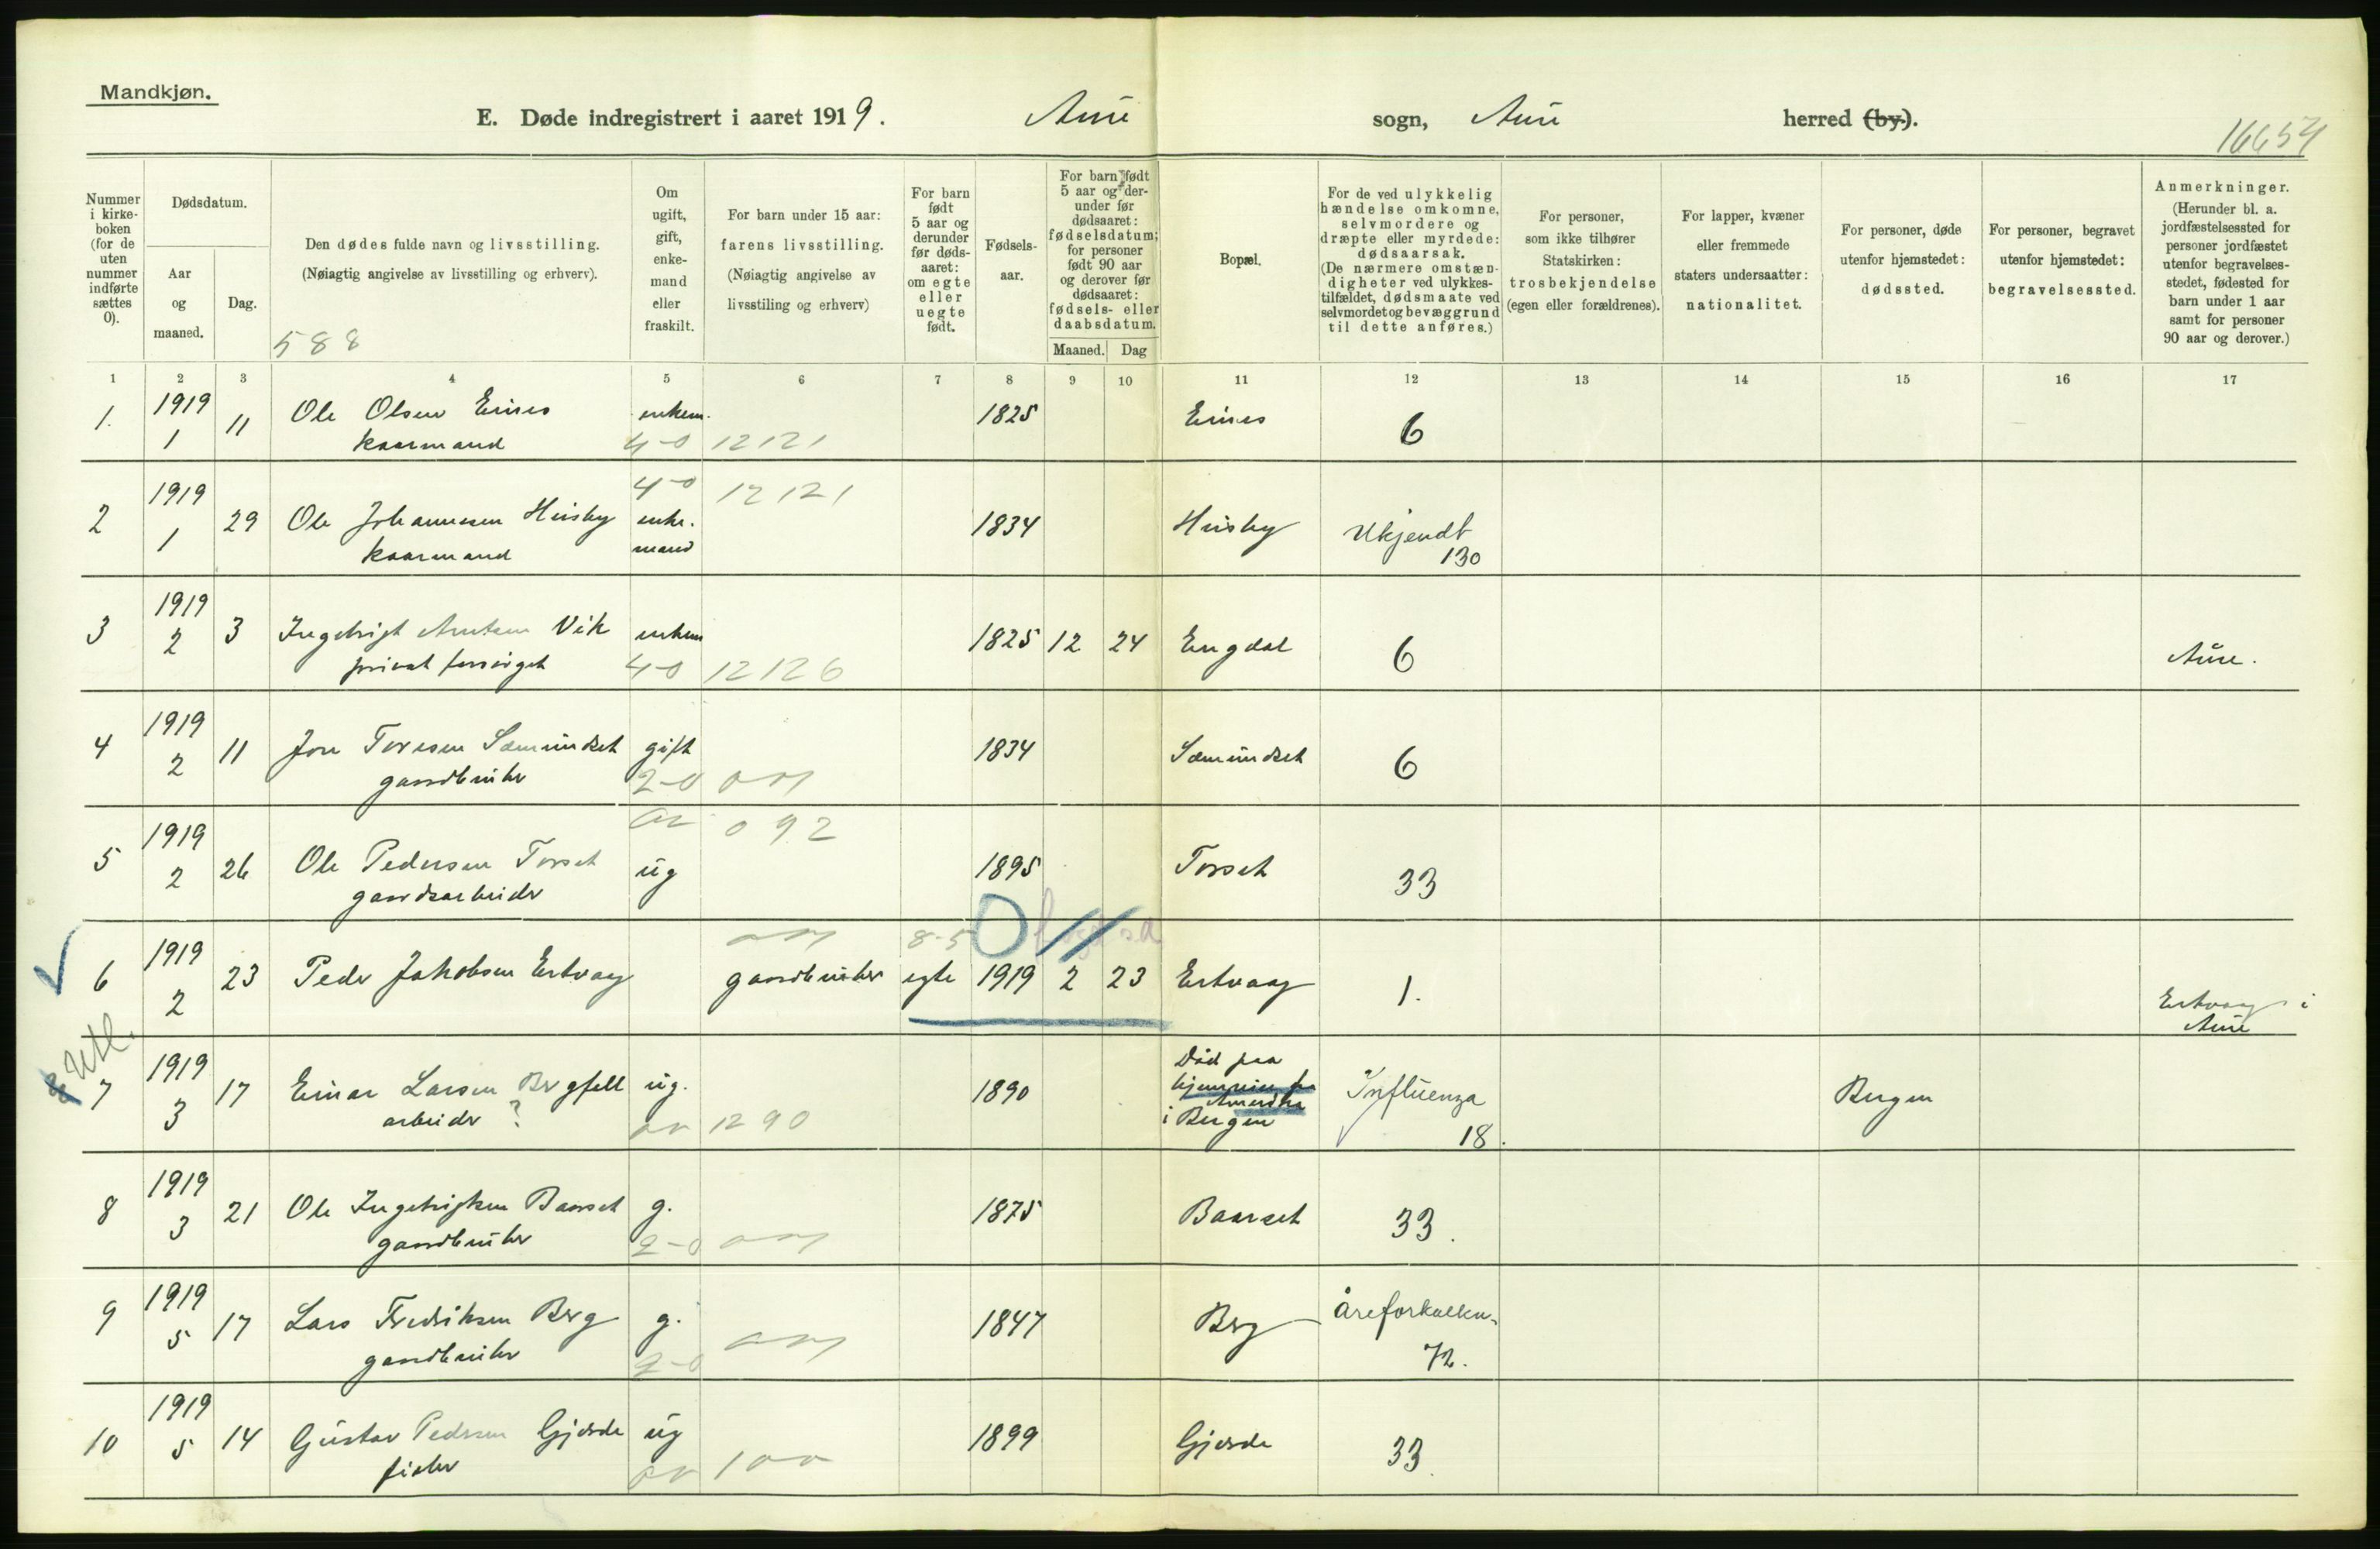 Mandkjøn.
E. Døde indregistrert i aaret 1919. Aure sogn, Aure herred (by).
16654
Nummer i kirke-boken (for de uten nummer indførte sættes 0).
Dødsdatum.
Aar og maaned.
Dag.
Den dødes fulde navn og livsstilling.
(Nøiagtig angivelse av livsstilling og erhverv).
588
Om ugift, gift, enke-mand eller fraskilt.
For barn under 15 aar:
farens livsstilling.
(Nøiagtig angivelse av livsstiling og erhverv)
For barn født 5 aar og derunder før døds-aaret: om egte eller uegte født.
Fødsels-aar.
For barn født 5 aar og der-under før dødsaaret: fødselsdatum; for personer født 90 aar og derover før dødsaaret: fødsels- eller daabsdatum.
Maaned. Dag
Bopæl.
For de ved ulykkelig hændelse omkomne, selvmordere og dræpte eller myrdede: dødsaarsak. (De nærmere omstæn-digheter ved ulykkes-tilfældet, dødsmaate ved selvmordet og bevæggrund til dette anføres.)
For personer, som ikke tilhører Statskirken: trosbekjendelse (egen eller forældrenes).
For lapper, kvæner eller fremmede staters undersaatter: nationalitet.
For personer, døde utenfor hjemstedet: dødssted.
For personer, begravet utenfor hjemstedet: begravelsessted.
Anmerkninger. (Herunder bl. a. jordfæstelsessted for personer jordfæstet utenfor begravelses-stedet, fødested for barn under 1 aar samt for personer 90 aar og derover.)
1 2 3 4 5 6 7 8 9 10 11 12 13 14 15 16 17
1. 1919 1 11 Ole Olsen Eines enkem. 1825 Eines 6
kaarmand 4-0 12121
4-0 12121
2 1919 1 29 Ole Johannesen Husby enke- 1834 Husby Ukjendt
kaarmand mand 130
3 1919 2 3 Ingebrigt Arntsen Vik enkem 1825 12 24 Engdal 6 Aure.
privat forsørget 4-0 12126
4 1919 2 11 Jon Toresen Sæmundset gift 1834 Sæmundset 6
gaardbruker 2-0
092
5 1919 2 26 Ole Pedersen Torset ug 1895 Torset 33
gaardsarbeider
8-5
6 1919 2 23 Peder Jakobsen Ertvaag gaardbruker egte 1919 2 23 Ertvaag 1. Ertvaag i
Aure
7 1919 3 17 Einar Larsen Bergfall ug. 1890 Død paa
hjemreise fra
Amerika
i Bergen Influenza 18. Bergen
arbeider ? 1290
8 1919 3 21 Ole Ingebrigtsen Baarset g. 1875 Baarset 33.
gaardbruker 2-0
9 1919 5 17 Lars Fredriksen Berg g. 1847 Berg åreforkalkn.
gaardbruker 2-0 72.
10 1919 5 14 Gustav Pedersen Gjerde ug 1899 Gjerde 33
fisker